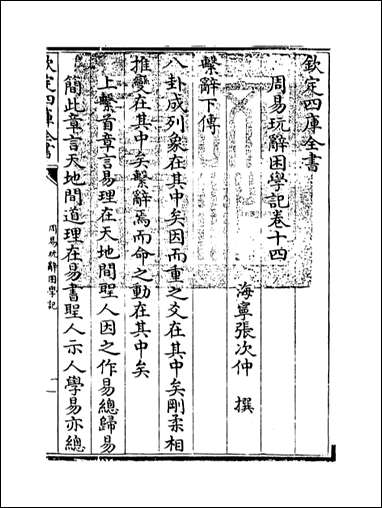 欽定四庫全書
周易玩辭困學記卷十四
海寧張次仲 撰
繫辭下傳
八卦成列象在其中矣因而重之爻在其中矣剛柔相
推變在其中矣繫辭焉而命之動在其中矣
上繫首章言易理在天地間聖人因之作易總歸易
簡此章言天地間道理在易書聖人示人學易亦總
欽定四庫全書
周易玩辭困學記
一